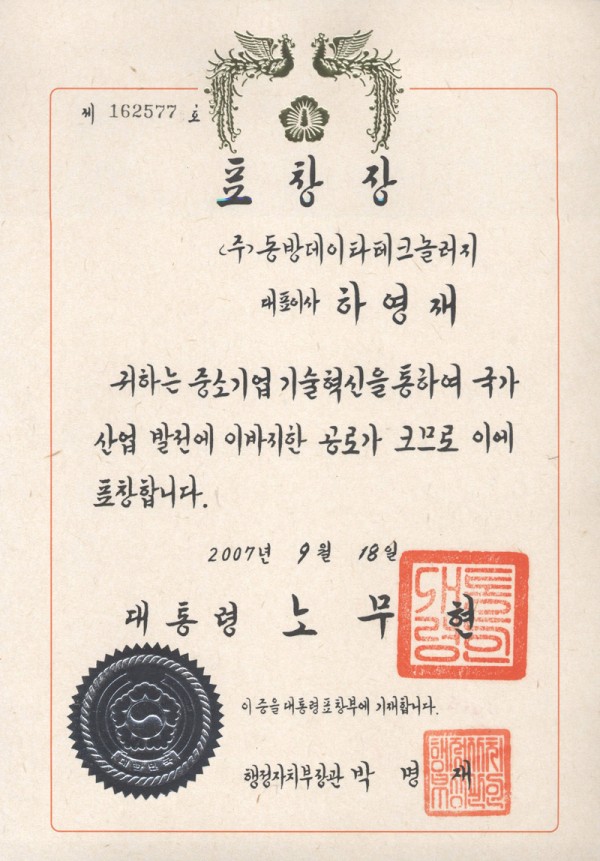 제 162577 호
표창장
(주)동방데이타테크놀러지
대표이사 하영재
귀하는 중소기업 기술혁신을 통하여 국가
산업 발전에 이바지한 공로가 크므로 이에
표창합니다.
2007년 9월 18일
대통령 노무현
이 증을 대통령표창부에 기재합니다.
대한민국
행정자치부장관 박명재